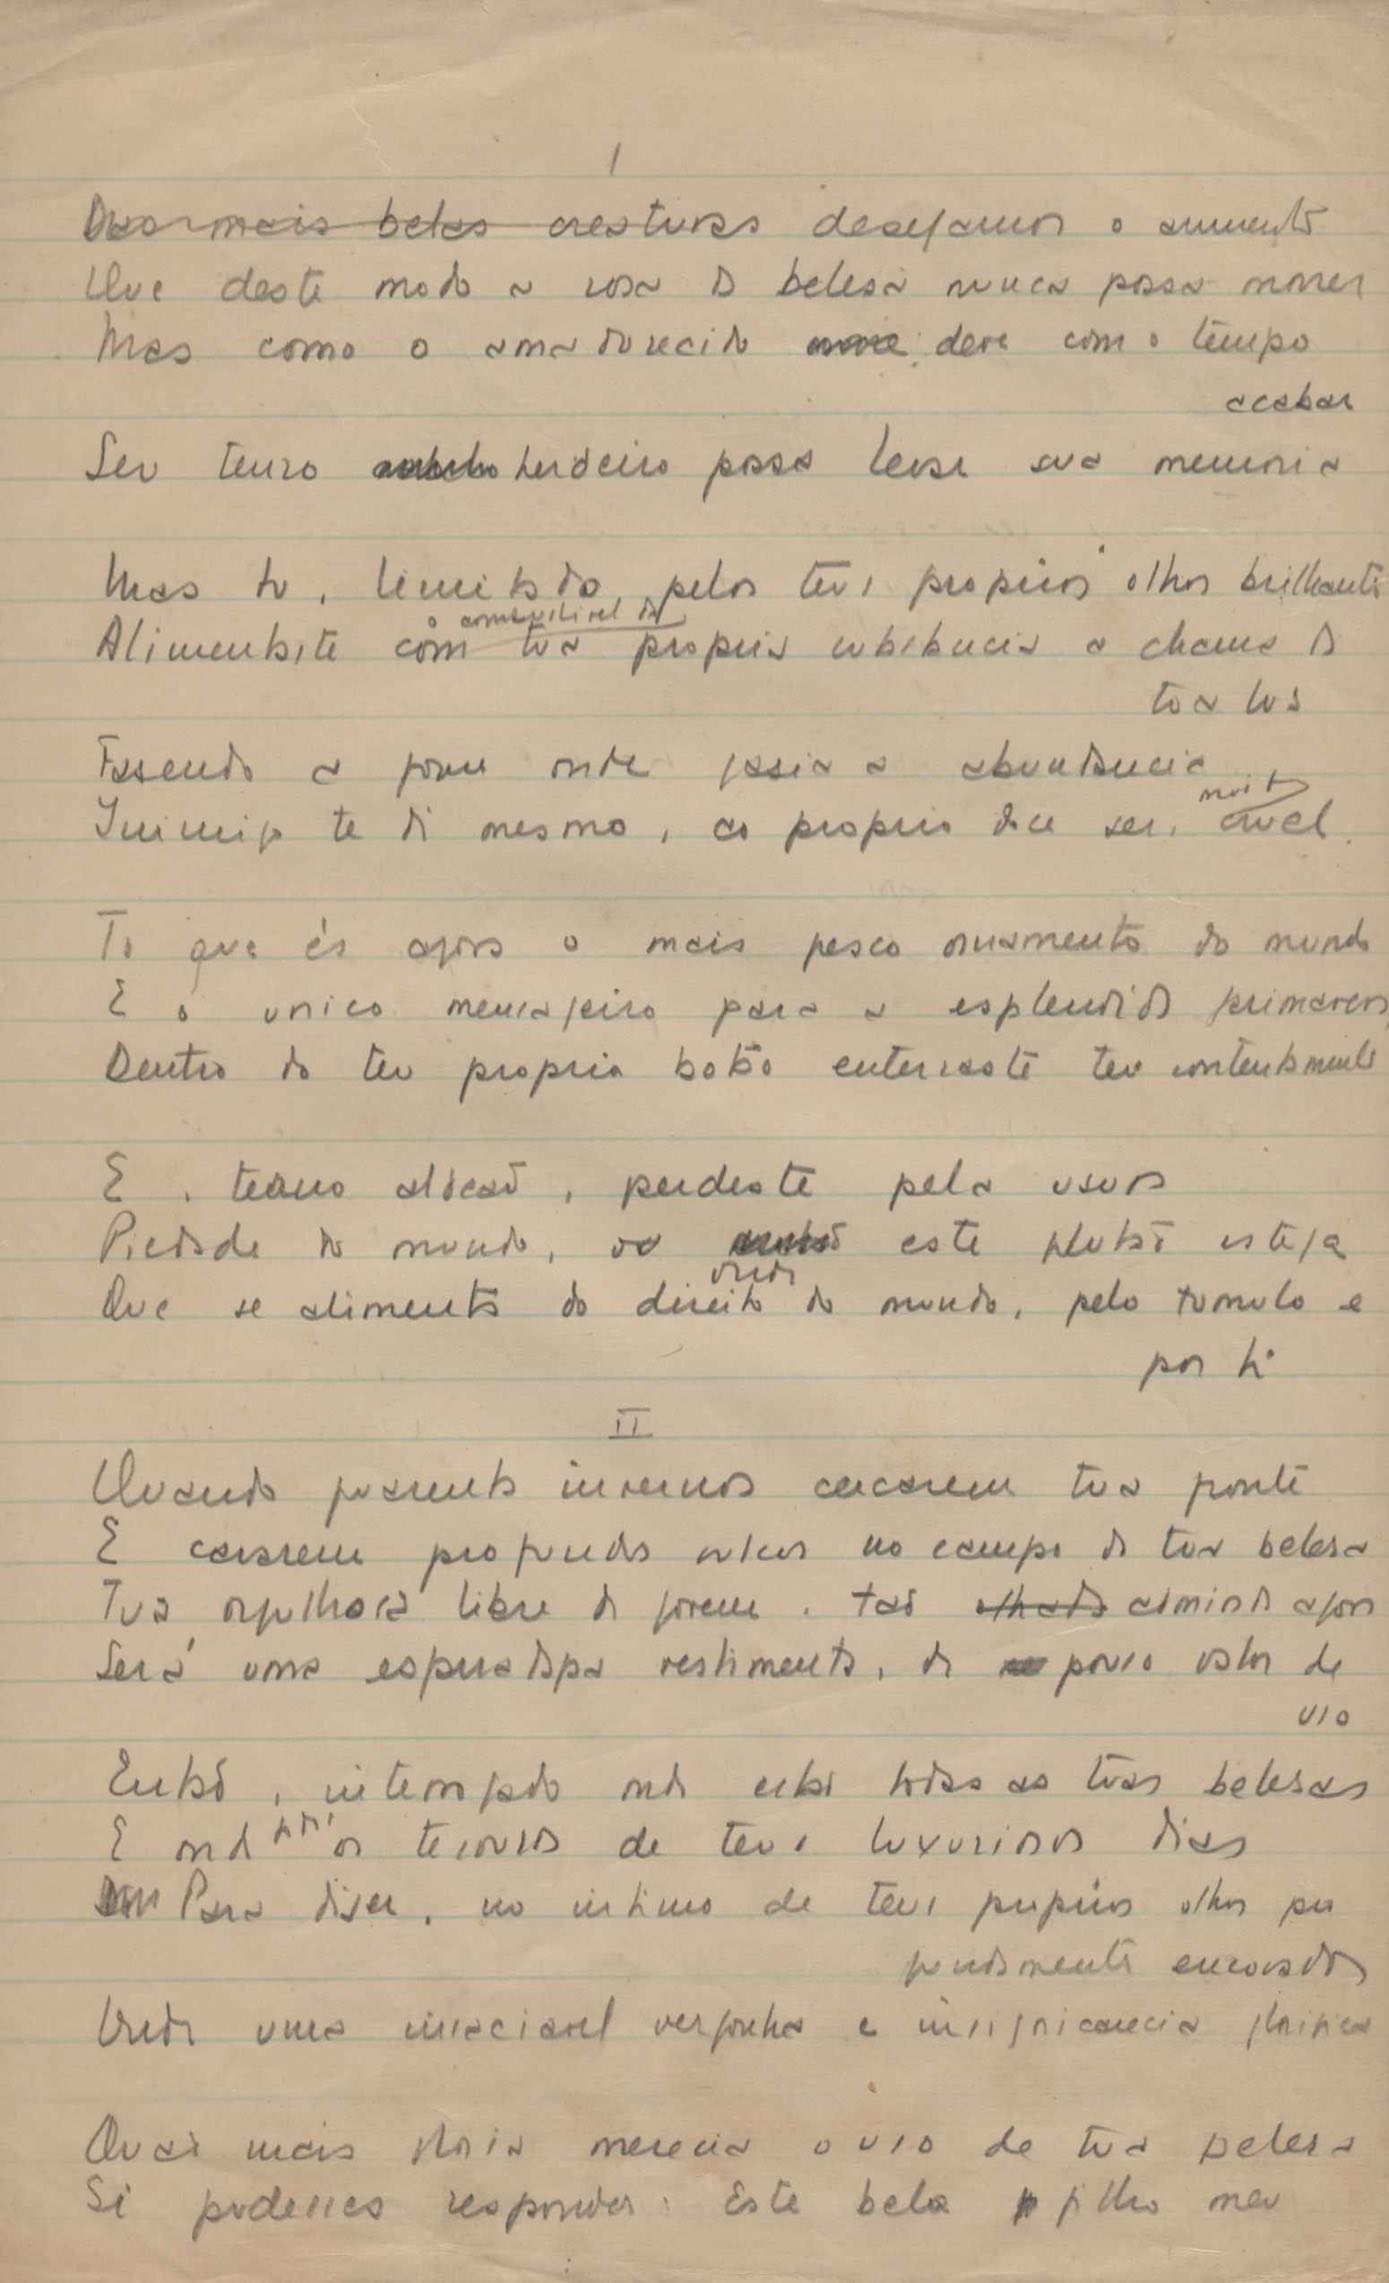 1
Das mais belas creaturas desejamos o aumento
Que deste modo a rosa da belesa nunca possa morrer
Mas como o amadurecido deve com o tempo
acabar
Seu tenro herdeiro possa levar sua memoria
Mas tu, limitado, pelos teus proprios olhos brilhantes
o combustivel da
Alimentaste com tua propria substancia a chama da
tua lus
Fasendo a fome onde jasia a abundancia
muito
Inimigo te di mesmo, ao proprio doce ser, cruel.
Tu que és agora o mais fresco ornamento do mundo
E o unico mensageiro para a esplendida primavera
Dentro do teu proprio botão enterraste teu contentamento
E, terno aldeão, perdeste pela usura
Piedade do mundo, ou este glutão esteja
Que se alimenta do direito do mundo, pelo tumulo e
por ti
II
Quando quarenta invernos cercarem tua fronte
E cavarem profundos sulcos no campo da tua belesa
Tua orgulhosa libre de jovem, tão olhada admirada agora
Será uma esfarrapada vestimenta, de pouco valor de
uso
Então, interrogado onde estão todas as tuas belesas
E onde os tesouros de teus luxuriosos dias
Para diser, no intimo de teus proprios olhos pro
fundamente encovados
Onde uma insaciavel vergonha e insignicancia glorifica
Quão mais gloria merecia o uso de tua belesa
Si pudesses responder: Este belo filho meu